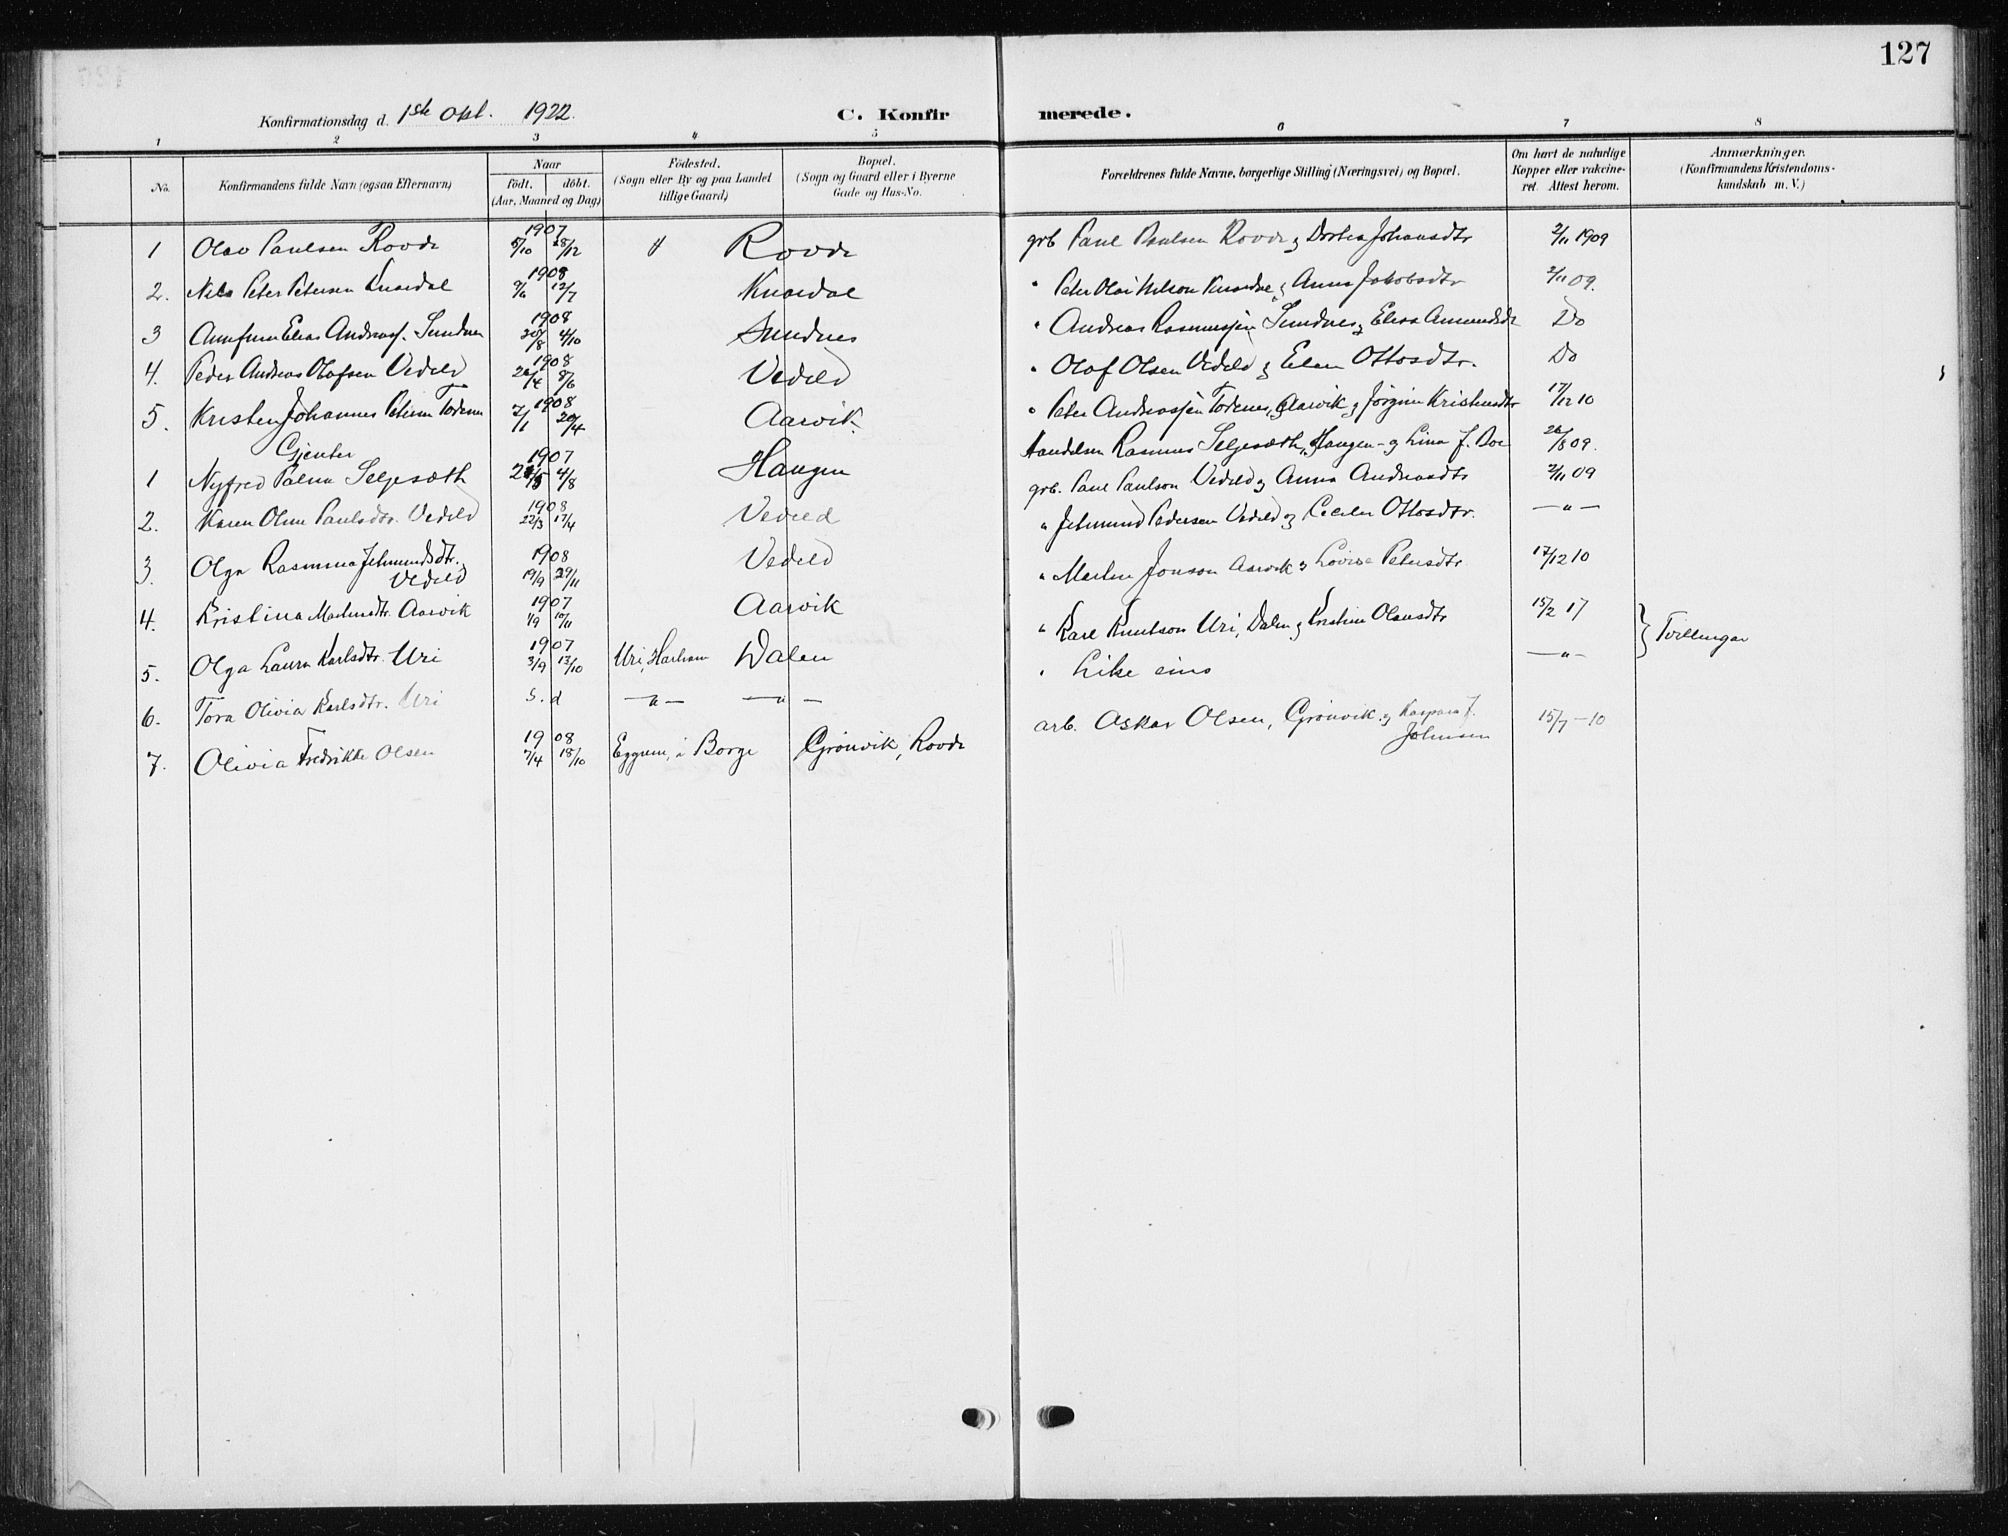 127
Konfirmationsdag d. 1ste Okt. 1922.
C. Konfirmerede.
1 2 3 4 5 6 7 8
No. Konfirmandens fulde Navn (ogsaa Efternavn) Naar født. døbt. (Aar, Maaned og Dag) Fødested. (Sogn eller By og paa Landet tillige Gaard) Bopæl. (Sogn og Gaard eller i Byerne Gade og Hus-No. Forældrenes fulde Navne, borgerlige Stilling (Næringsvei) og Bopæl. Om havt de naturlige Kopper eller vakcineret. Attest herom. Anmærkninger. (Konfirmandens Kristendomskundskab m. V.)
1 Olav Paulsen Rovde 1907 5/10 28/12 " Rovde grb Paul Paulsen Rovde og Dortea Johansdtr 2/11 1909
2. Nils Peter Petersen Knardal 1908 9/6 12/7 Knardal " Peter Olai Nilson Knardal og Anna Jakobsdtr 2/11 09.
3 Elias Andreas. Sundnes 1908 20/8 4/10 Sundnes " Andreas Rasmussen Sundnes og Elisa Amundsdtr Do
4. Peder Andreas Olafsen Vedeld 1908 26/4 8/6 Vedeld " Olaf Olsen Vedeld og Elen Ottosdtr. Do
5. Kristen Johannes Petersen Todnem 1908 7/1 20/4 Aarvik. " Peter Andreassen Todnes, Aarvik og Jørgine Kristensdtr 17/12 10
Gjenter
1 Nyfred Palma Seljesæth 1907 24/5 4/8 Haugen Handelsm Rasmus Seljesæth, Haugen og Lina J. Boe 26/8 09.
2. Karen Oline Paulsdtr. Vedeld 1908 22/3 17/4 Vedeld grb. Paul Paulson Vedeld og Anna Andreasdtr 2/11 09
3. Olga Rasmina Jetmundsdtr. Vedeld 1908 19/9 29/11 Vedeld " Jetmund Pedersen Vedeld og Cecilie Ottosdtr. — " —
4. Kristina Martinsdtr. Aarvik 1907 1/9 10/11 Aarvik " Martin Jonson Aarvik og Lovise Petersdtr 17/12 10
5. Olga Laura Karlsdtr. Uri 1907 3/9 13/10 Uri, Harham Dalen " Karl Knutson Uri, Dalen og Kristine Olausdtr 15/2 17 } Tvillingar
6. Tora Olivia Karlsdtr. Uri s. d — " — — " — " Like eins — " —
7. Olivia Fredrikke Olsen 1908 7/4 18/10 Eggum, i Borge Grønvik, Rovde arb. Oskar Olsen, Grønvik og Kaspara J. Johnsen 15/7 - 10